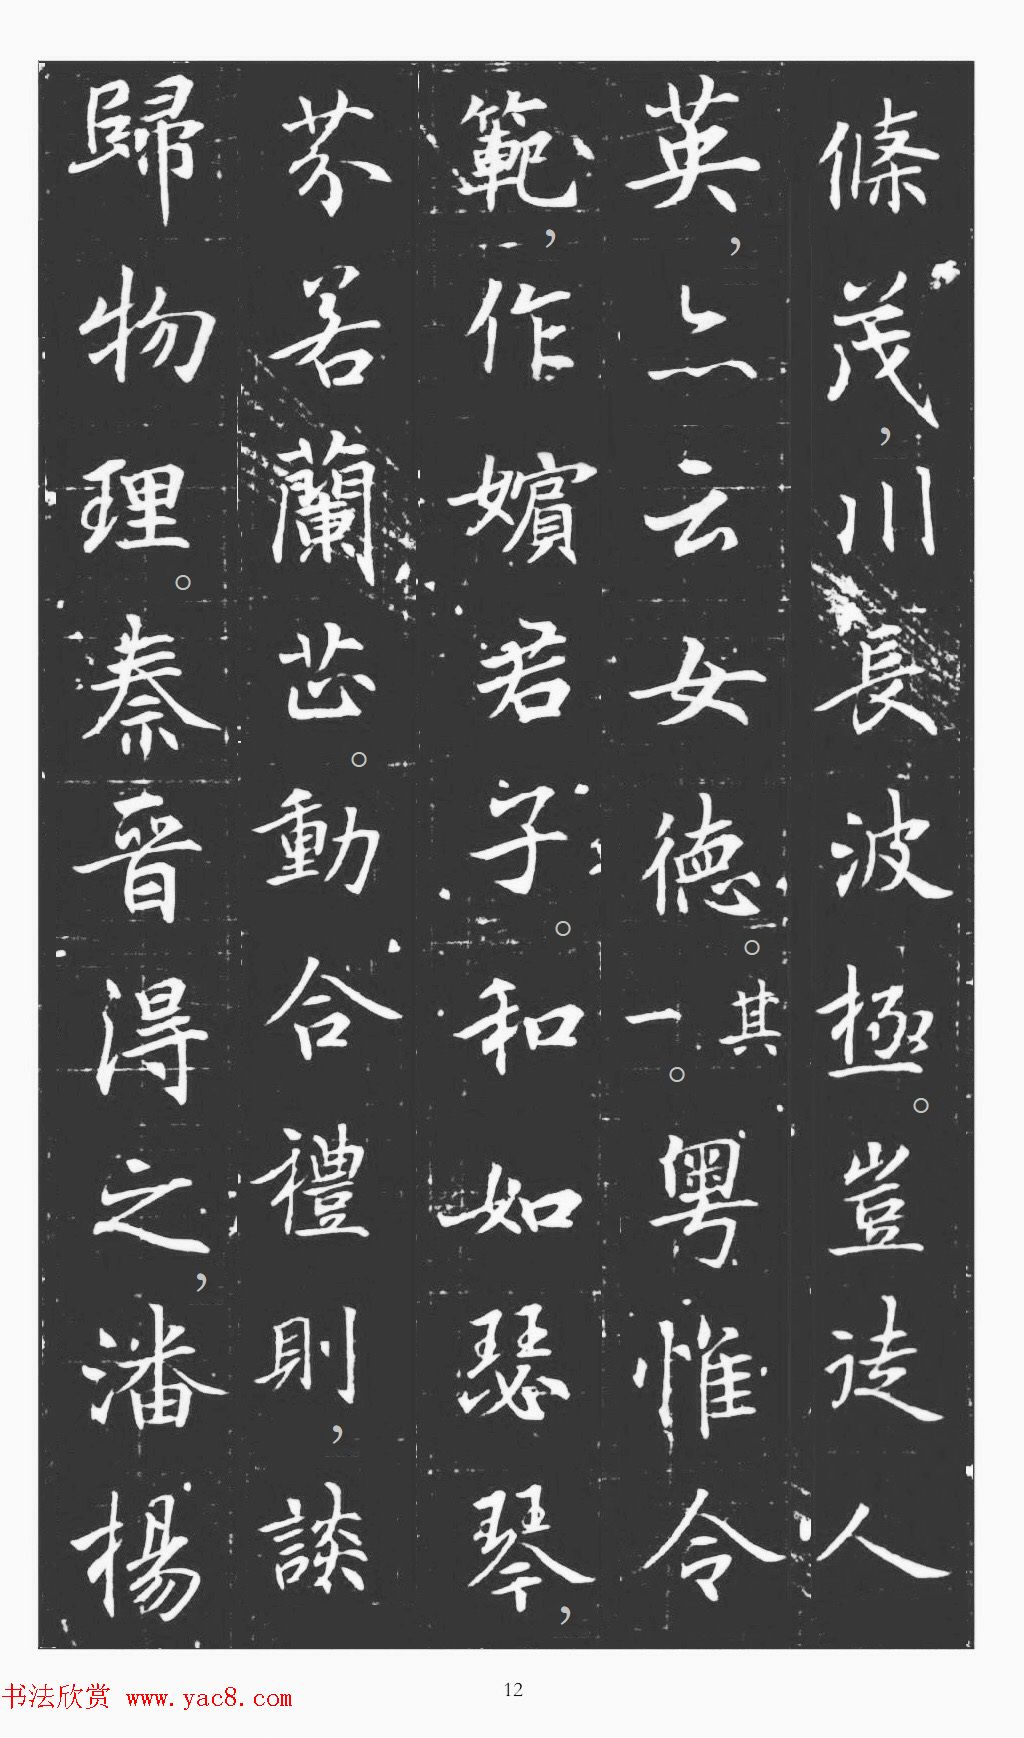 條茂，川長波極。豈徒人
英，亦云女德。其一。粤惟令
範，作嬪君子。和如瑟琴，
芬若蘭芷。動合禮則，談
歸物理。秦晉得之，潘楊
书法欣赏 www.yac8.com
12